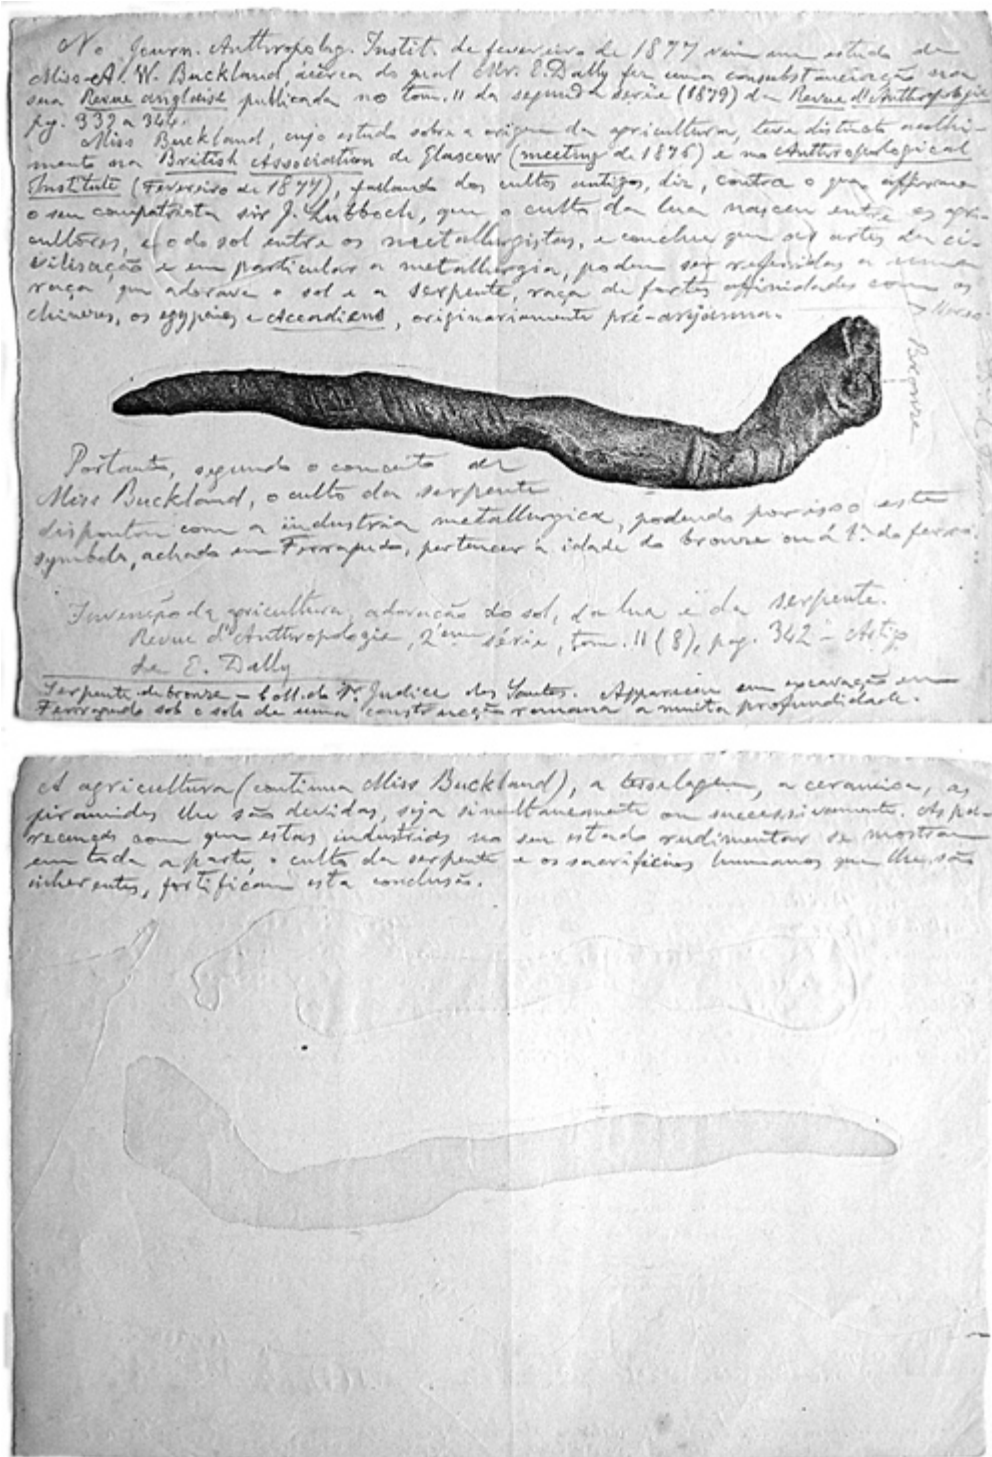 No Journ. Anthropolog. Instit. de fevereiro de 1877 vem um estudo de
Miss A. W. Buckland, ácerca do qual Mr. E. Dally fez uma consubstanciação na
sua Revue anglaise publicada no tom. II da segunda serie (1879) da Revue d'Anthropologie
pg. 332 a 344.
Miss Buckland, cujo estudo sobre a origem da agricultura, teve distincto acolhi-
mento na British Association de Glascow (meeting de 1876) e no Anthropological
Institute (Fevereiro de 1877), fallando dos cultos antigos, diz, contra o que affirma
o seu compatriota sir J. Lubboch, que o culto da lua nasceu entre os agri-
cultores, e o do sol entre os metallurgistas, e conclue que as artes da ci-
vilisação e em particular a metallurgia, podem ser referidas a uma
raça, que adorava o sol e a serpente, raça de fortes affinidades com os
chineses, os egypcios e Accadiens, originariamente pré-aryanna.
Bronze
Portanto, segundo o conceito de
Miss Buckland, o culto da serpente
despontou com a industria metallurgica, podendo por isso este
symbolo, achado em Ferragudo, pertencer á idade do bronze ou á 1ª. do ferro.
Invenção da agricultura, adoração do sol, da lua e da serpente.
Revue d'Anthropologie, 2eme série, tom. II (8), pag. 342 - Artigo
de E. Dally
Serpente de bronze - Coll. do Pr. Judice dos Santos. Appareceu em excavação em
Ferragudo sob o solo de uma construcção romana a muita profundidade.
A agricultura (continua Miss Buckland), a tesselagem, a ceramica, as
piramides lhe são devidas, seja simultaneamente ou successivamente. As pa-
recenças com que estas industrias no seu estado rudimentar se mostram
em toda a parte, o culto da serpente e os sacrificios humanos que lhe são
inherentes, fortificam esta conclusão.